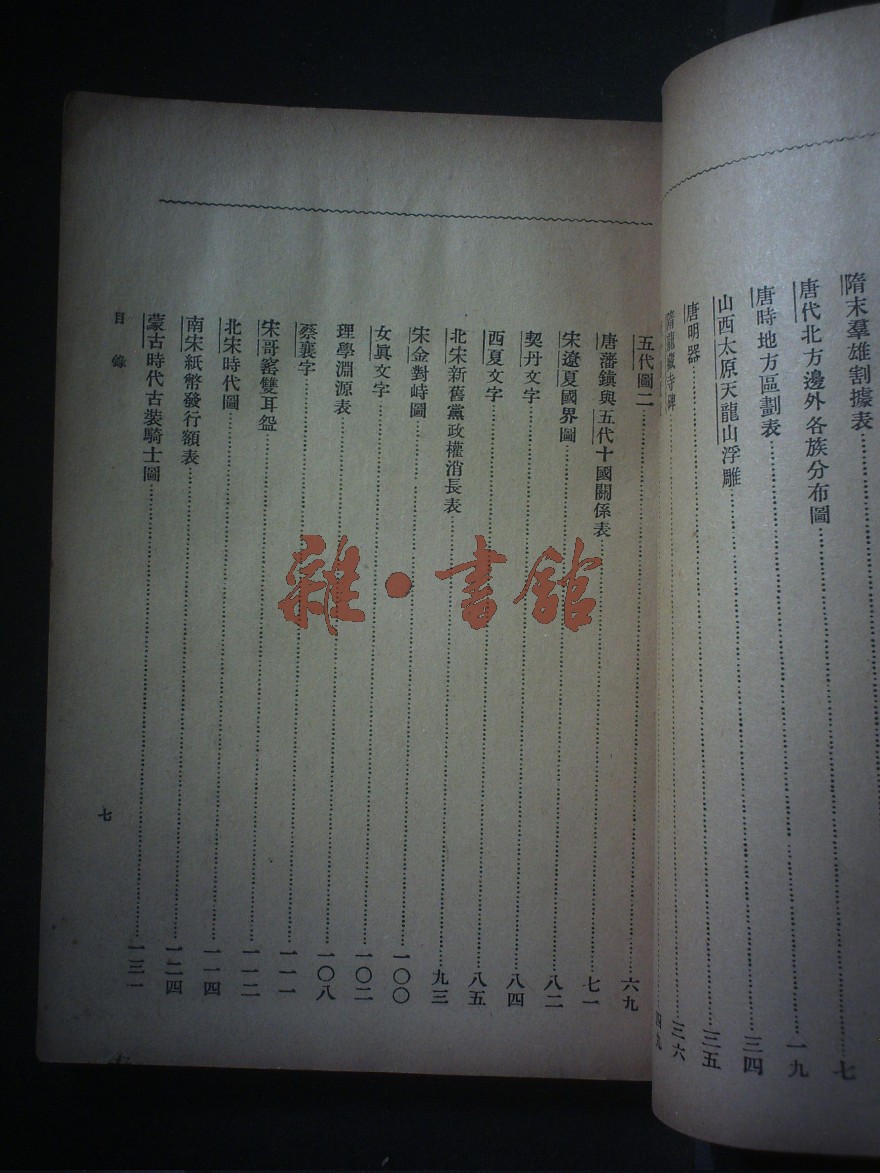 隋末羣雄割據表 七
唐代北方邊外各族分布圖 一九
唐時地方區劃表 三四
山西太原天龍山浮雕 三五
唐明器 三六
隋龍藏寺碑 四九
五代圖二 六九
唐藩鎮與五代十國關係表 七一
宋遼夏國界圖 八二
契丹文字 八四
西夏文字 八五
北宋新舊黨政權消長表 九三
宋金對峙圖 一〇〇
女眞文字 一〇二
理學淵源表 一〇八
蔡襄字 一一一
宋哥窰雙耳盌 一一二
北宋時代圖 一一四
南宋紙幣發行額表 一二四
蒙古時代古裝騎士圖 一三一
目錄
七
雜·書館